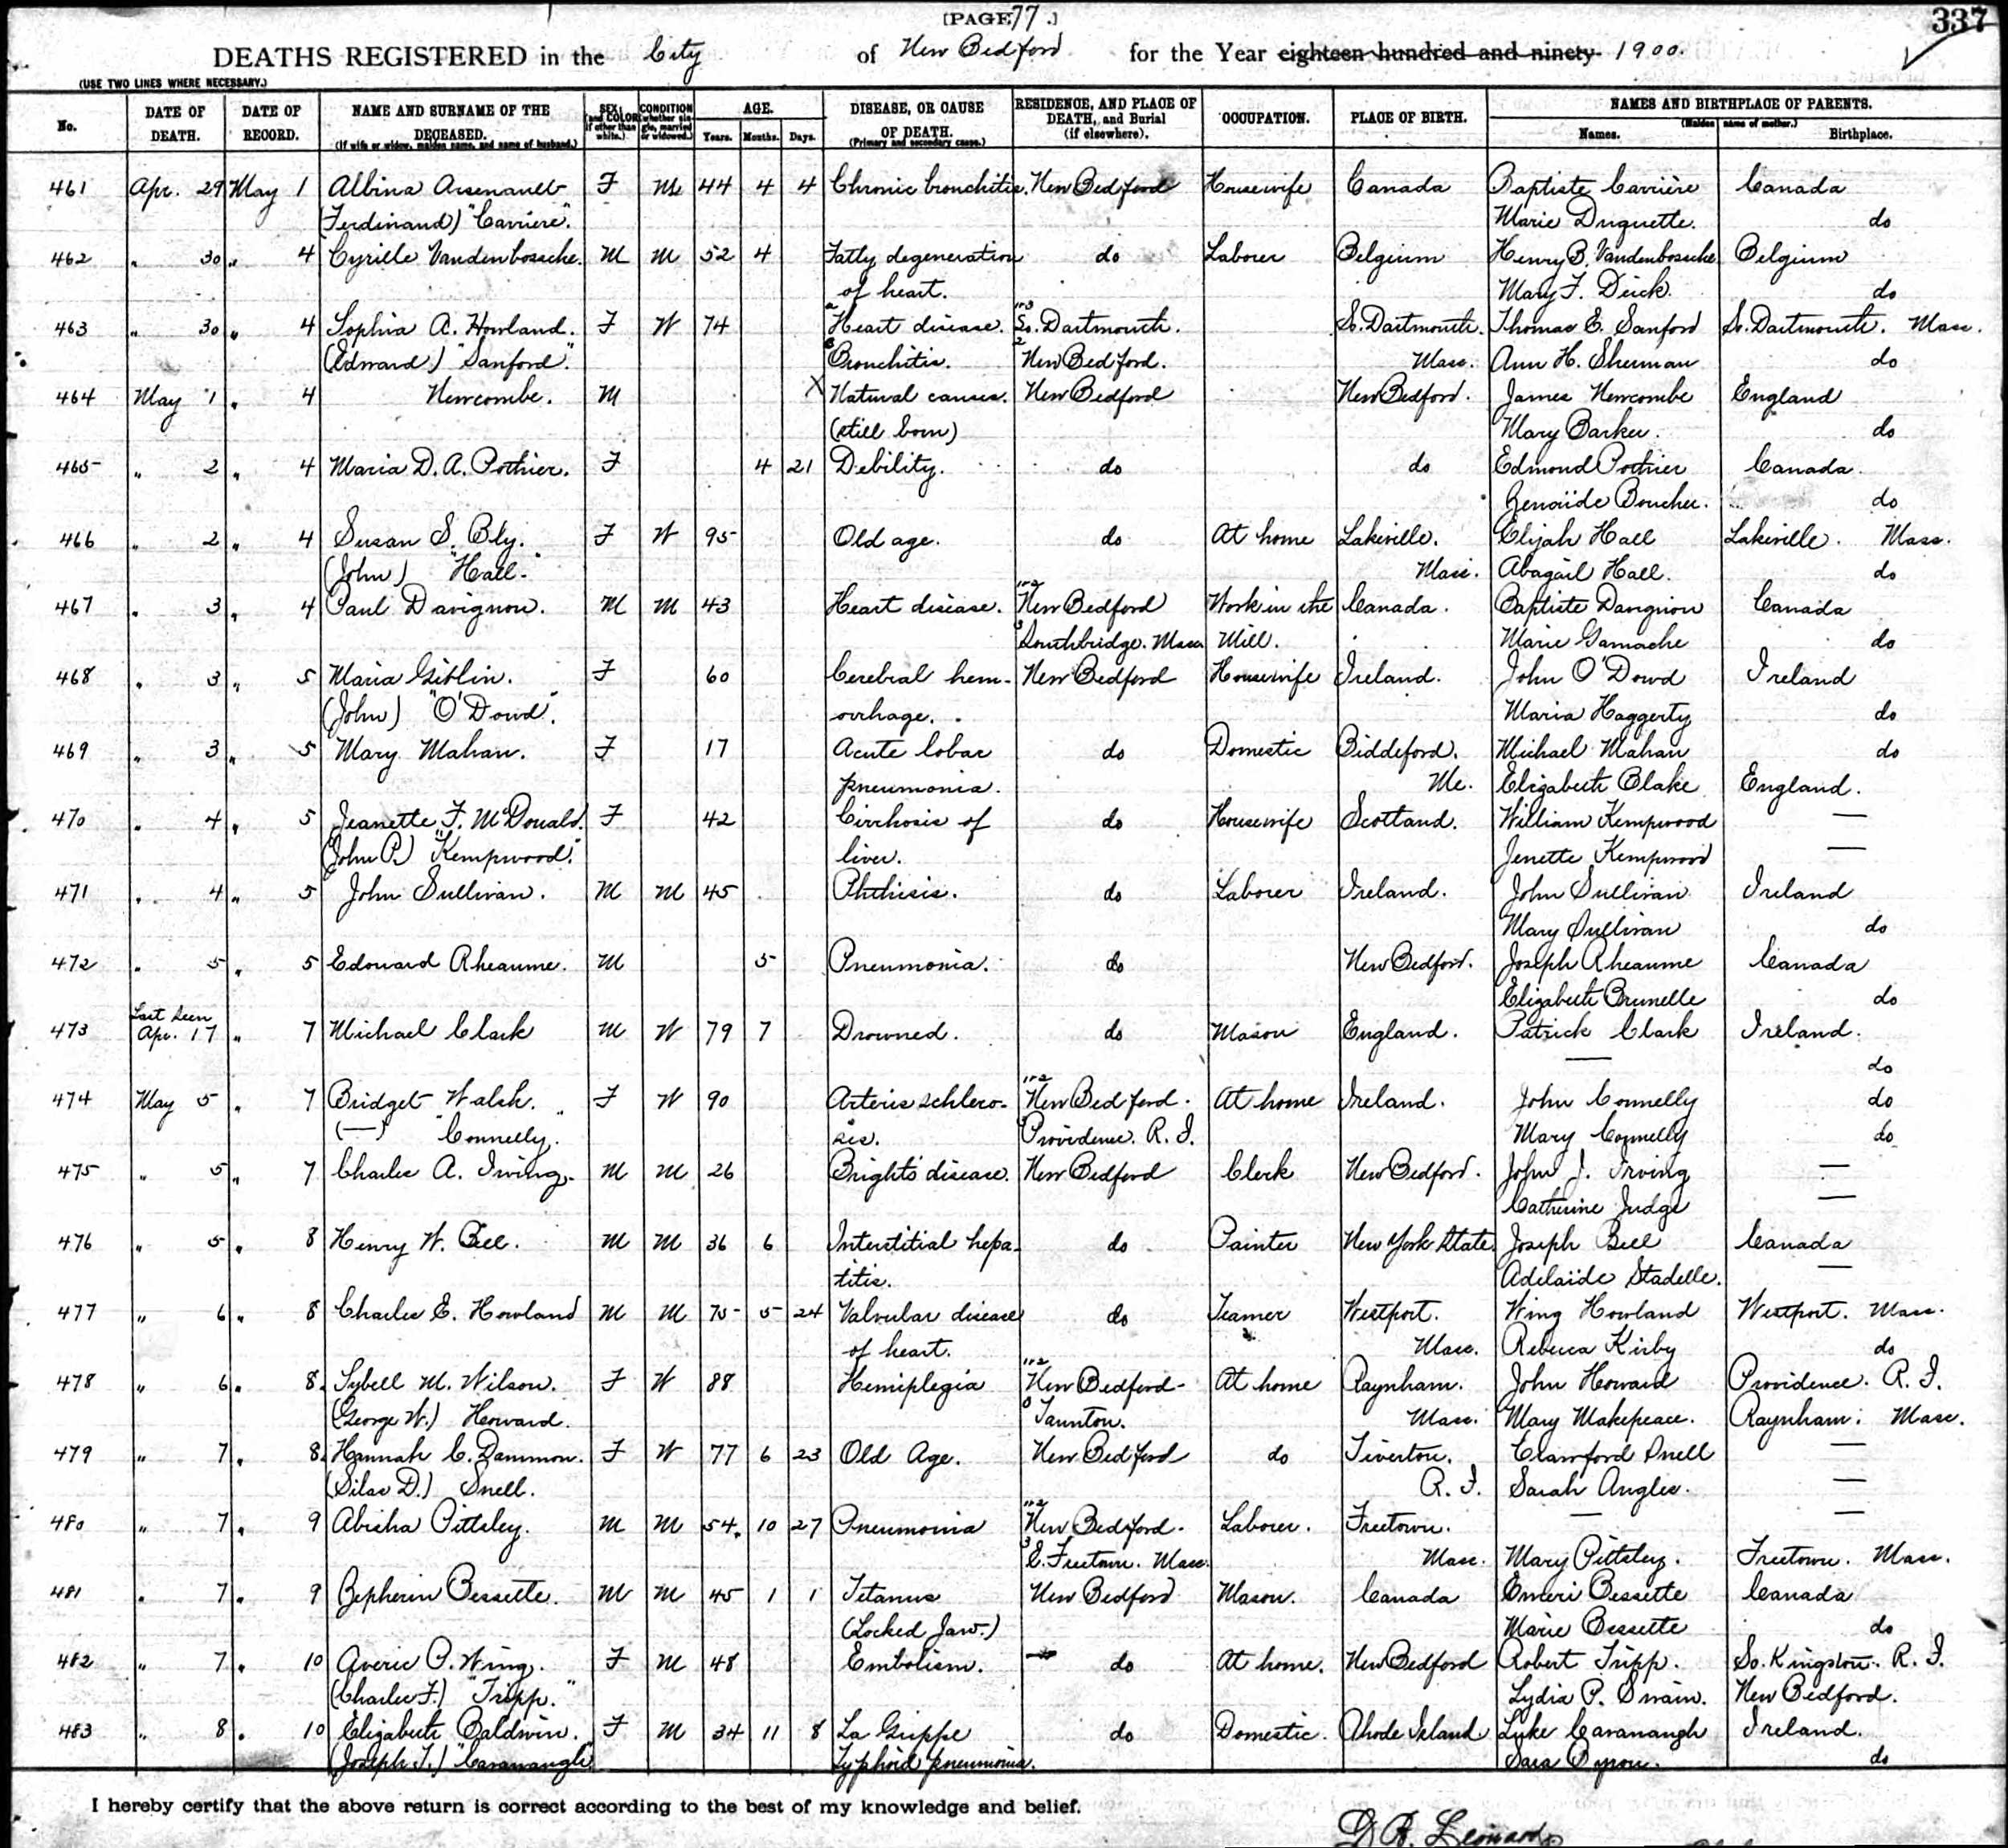 [PAGE 77.]
337
DEATHS REGISTERED in the City of New Bedford for the Year eighteen hundred and ninety 1900.
(USE TWO LINES WHERE NECESSARY.)
No. DATE OF DEATH. DATE OF RECORD. NAME AND SURNAME OF THE DECEASED. (If wife or widow, maiden name, and name of husband.) SEX; (and COLOR if other than white.) CONDITION (whether single, married or widowed.) AGE. Years. Months. Days. DISEASE, OR CAUSE OF DEATH. (Primary and secondary cause.) RESIDENCE, AND PLACE OF DEATH, and Burial (if elsewhere). OCCUPATION. PLACE OF BIRTH. NAMES AND BIRTHPLACE OF PARENTS. (Maiden name of mother.) Names. Birthplace.
461 Apr. 29 May 1 Albina Arsenault F M 44 4 4 Chronic bronchitis. New Bedford Housewife Canada Baptiste Carrière Canada
(Ferdinand) "Carriere". Marie Duquette. do
462 " 30 " 4 Cyrille Vandenbossche. M M 52 4 Fatty degeneration do Laborer Belgium Henry B. Vandenbossche Belgium
of heart. Mary F. Deick. do
463 " 30 " 4 Sophia A. Howland. F W 74 Heart disease. So. Dartmouth. So. Dartmouth. Thomas E. Sanford So. Dartmouth. Mass.
(Edward) "Sanford". Bronchitis. 2 New Bedford. Mass. Ann H. Sherman do
464 May 1 " 4 Newcombe. M X Natural causes. New Bedford New Bedford. James Newcombe England
(still born) Mary Barker. do
465 " 2 " 4 Maria D. A. Pothier. F 4 21 Debility. do do Edmond Pothier Canada.
Zenaïde Boucher. do
466 " 2 " 4 Susan S. Bly. F W 95 Old age. do At home Lakeville. Elijah Hall Lakeville. Mass.
(John) "Hall." Mass. Abagail Hall. do
467 " 3 " 4 Paul Davignon. M M 43 Heart disease. New Bedford Work in the Canada. Baptiste Davignon Canada
3 Southbridge. Mass. Mill. Marie Gamache do
468 " 3 " 5 Maria Giblin. F 60 Cerebral hem- New Bedford Housewife Ireland. John O'Dowd Ireland
(John) "O'Dowd". orrhage. Maria Haggerty do
469 " 3 " 5 Mary Mahan. F 17 Acute lobar do Domestic Biddeford. Michael Mahan do
pneumonia. Me. Elizabeth Blake England.
470 " 4 " 5 Jeanette F. McDonald. F 42 Cirrhosis of do Housewife Scotland. William Kempwood —
(John P.) "Kempwood." liver. Jenette Kempwood —
471 " 4 " 5 John Sullivan. M M 45 Phthisis. do Laborer Ireland. John Sullivan Ireland
Mary Sullivan do
472 " 5 " 5 Edouard Rheaume. M 5 Pneumonia. do New Bedford. Joseph Rheaume Canada
Elizabeth Brunelle do
Last seen
473 Apr. 17 " 7 Michael Clark M W 79 7 Drowned. do Mason England. Patrick Clark Ireland.
— do
474 May 5 " 7 Bridget Walsh. F W 90 Arterio schlero- New Bedford. At home Ireland. John Connelly do
(—) "Connelly". sis. Providence. R. I. Mary Connelly do
475 " 5 " 7 Charles A. Irving. M M 26 Bright's disease. New Bedford Clerk New Bedford. John J. Irving —
Catherine Judge —
476 " 5 " 8 Henry W. Bell. M M 36 6 Interstitial hepa- do Painter New York State. Joseph Bell Canada
titis. Adelaïde Stadelle. —
477 " 6 " 8 Charles E. Howland M M 75 5 24 Valvular disease do Teamer Westport. Wing Howland Westport. Mass.
of heart. Mass. Rebecca Kirby do
478 " 6 " 8. Sybell M. Wilson. F W 88 Hemiplegia New Bedford- At home Raynham. John Howard Providence. R. I.
(George W.) Howard. Taunton. Mass. Mary Makepeace. Raynham. Mass.
479 " 7 " 8. Hannah C. Dammon. F W 77 6 23 Old Age. New Bedford do Tiverton. Clawford Snell —
(Silas D.) Snell. R. I. Sarah Angles. —
480 " 7 " 9 Abisha Pittsley. M M 54. 10 27 Pneumonia New Bedford. Laborer. Freetown. — —
3 E. Freetown. Mass. Mass. Mary Pittsley. Freetown. Mass.
481 " 7 " 9 Zepherin Bessette. M M 45 1 1 Tetanus New Bedford Mason. Canada Emeri Bessette Canada
(Locked Jaw.) Marie Bessette do
482 " 7 " 10 Averic P. Wing. F M 48 Embolism. do At home. New Bedford Robert Tripp. So. Kingston. R. I.
(Charles F.) "Tripp." Lydia P. Swain. New Bedford.
483 " 8 " 10 Elizabeth Baldwin. F M 34 11 8 La Grippe do Domestic. Rhode Island Luke Cavanaugh Ireland.
(Joseph T.) "Cavanaugh" Typhoid pneumonia. Sara Dyson. do
I hereby certify that the above return is correct according to the best of my knowledge and belief.
D. B. Leonard